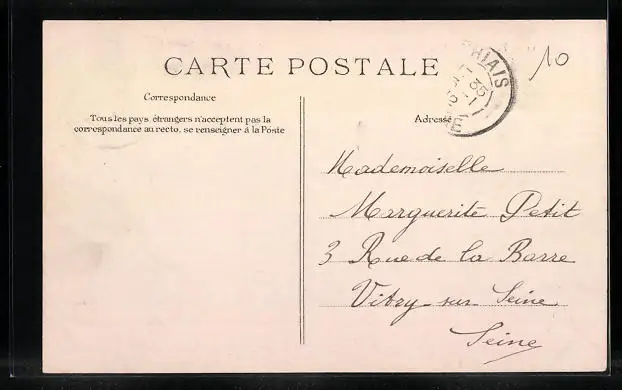 CARTE POSTALE
Correspondance
Tous les pays étrangers n'acceptent pas la
correspondance au recto, se renseigner à la Poste
Adresse
THIAIS
10
Mademoiselle
Marguerite Petit
3 Rue de la Barre
Vitry-sur Seine
Seine